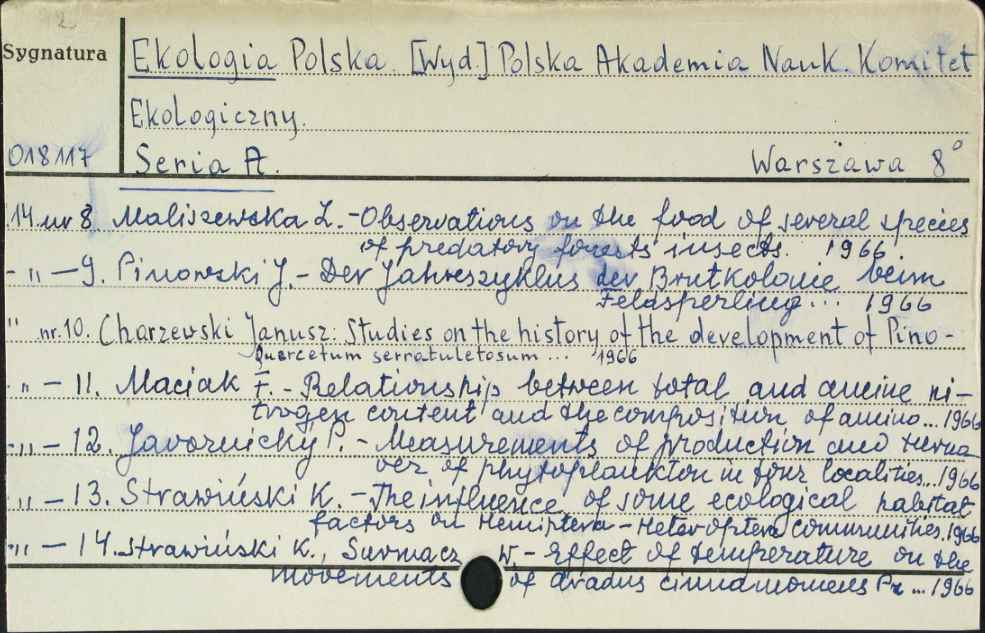 92
Sygnatura
Ekologia Polska. [Wyd.] Polska Akademia Nauk. Komitet
Ekologiczny.
018117 Seria A. Warszawa 8°
14 nr 8 Maliszewska L. - Observations on the food of several species
of predatory forests insects. 1966
- " - 9. Pinowski J. - Der Jahreszyklus der Brutkolonie beim
Feldsperling ... 1966
" nr. 10. Charzewski Janusz: Studies on the history of the development of Pino-
Quercetum serratuletosum ... 1966
- " - 11. Maciak F. - Relationship between total and amine ni-
trogen content and the composition of amino... 1966
- " - 12. Javornický P. - Measurements of production and turno
ver of phytoplankton in four localities... 1966
- " - 13. Strawiński K. - The influence of some ecological habitat
factors on Hemiptera - Heteroptera Communities. 1966
- " - 14. Strawiński K., Surmacz W. - Effect of temperature on the
movements of aradus cinnamomens Pz ... 1966